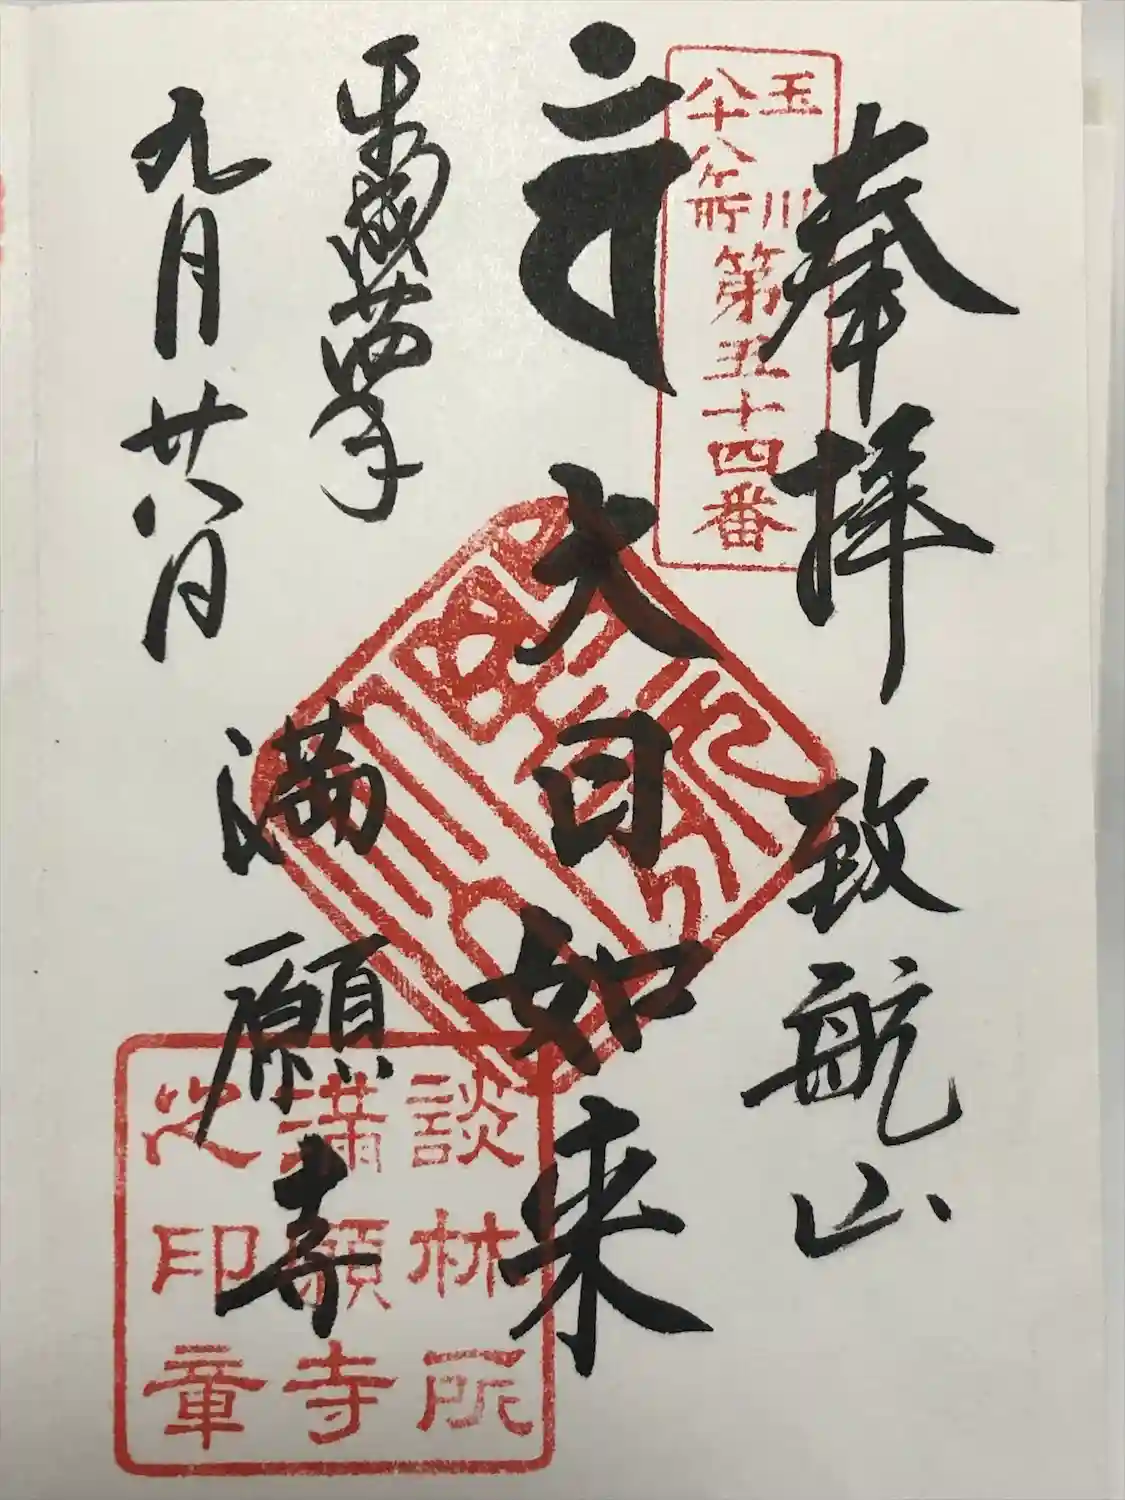 奉拝 致航山
玉川
八十八ケ所
第五十四番
大日如来
平成廿四年
九月廿八日
満願寺
談林所
満願寺
之印章